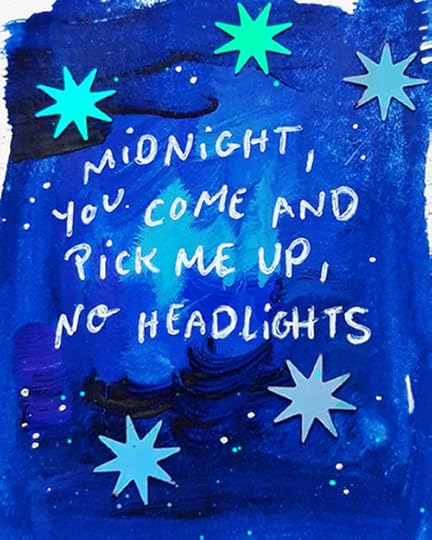 MIDNIGHT,
YOU COME AND
PICK ME UP,
NO HEADLIGHTS